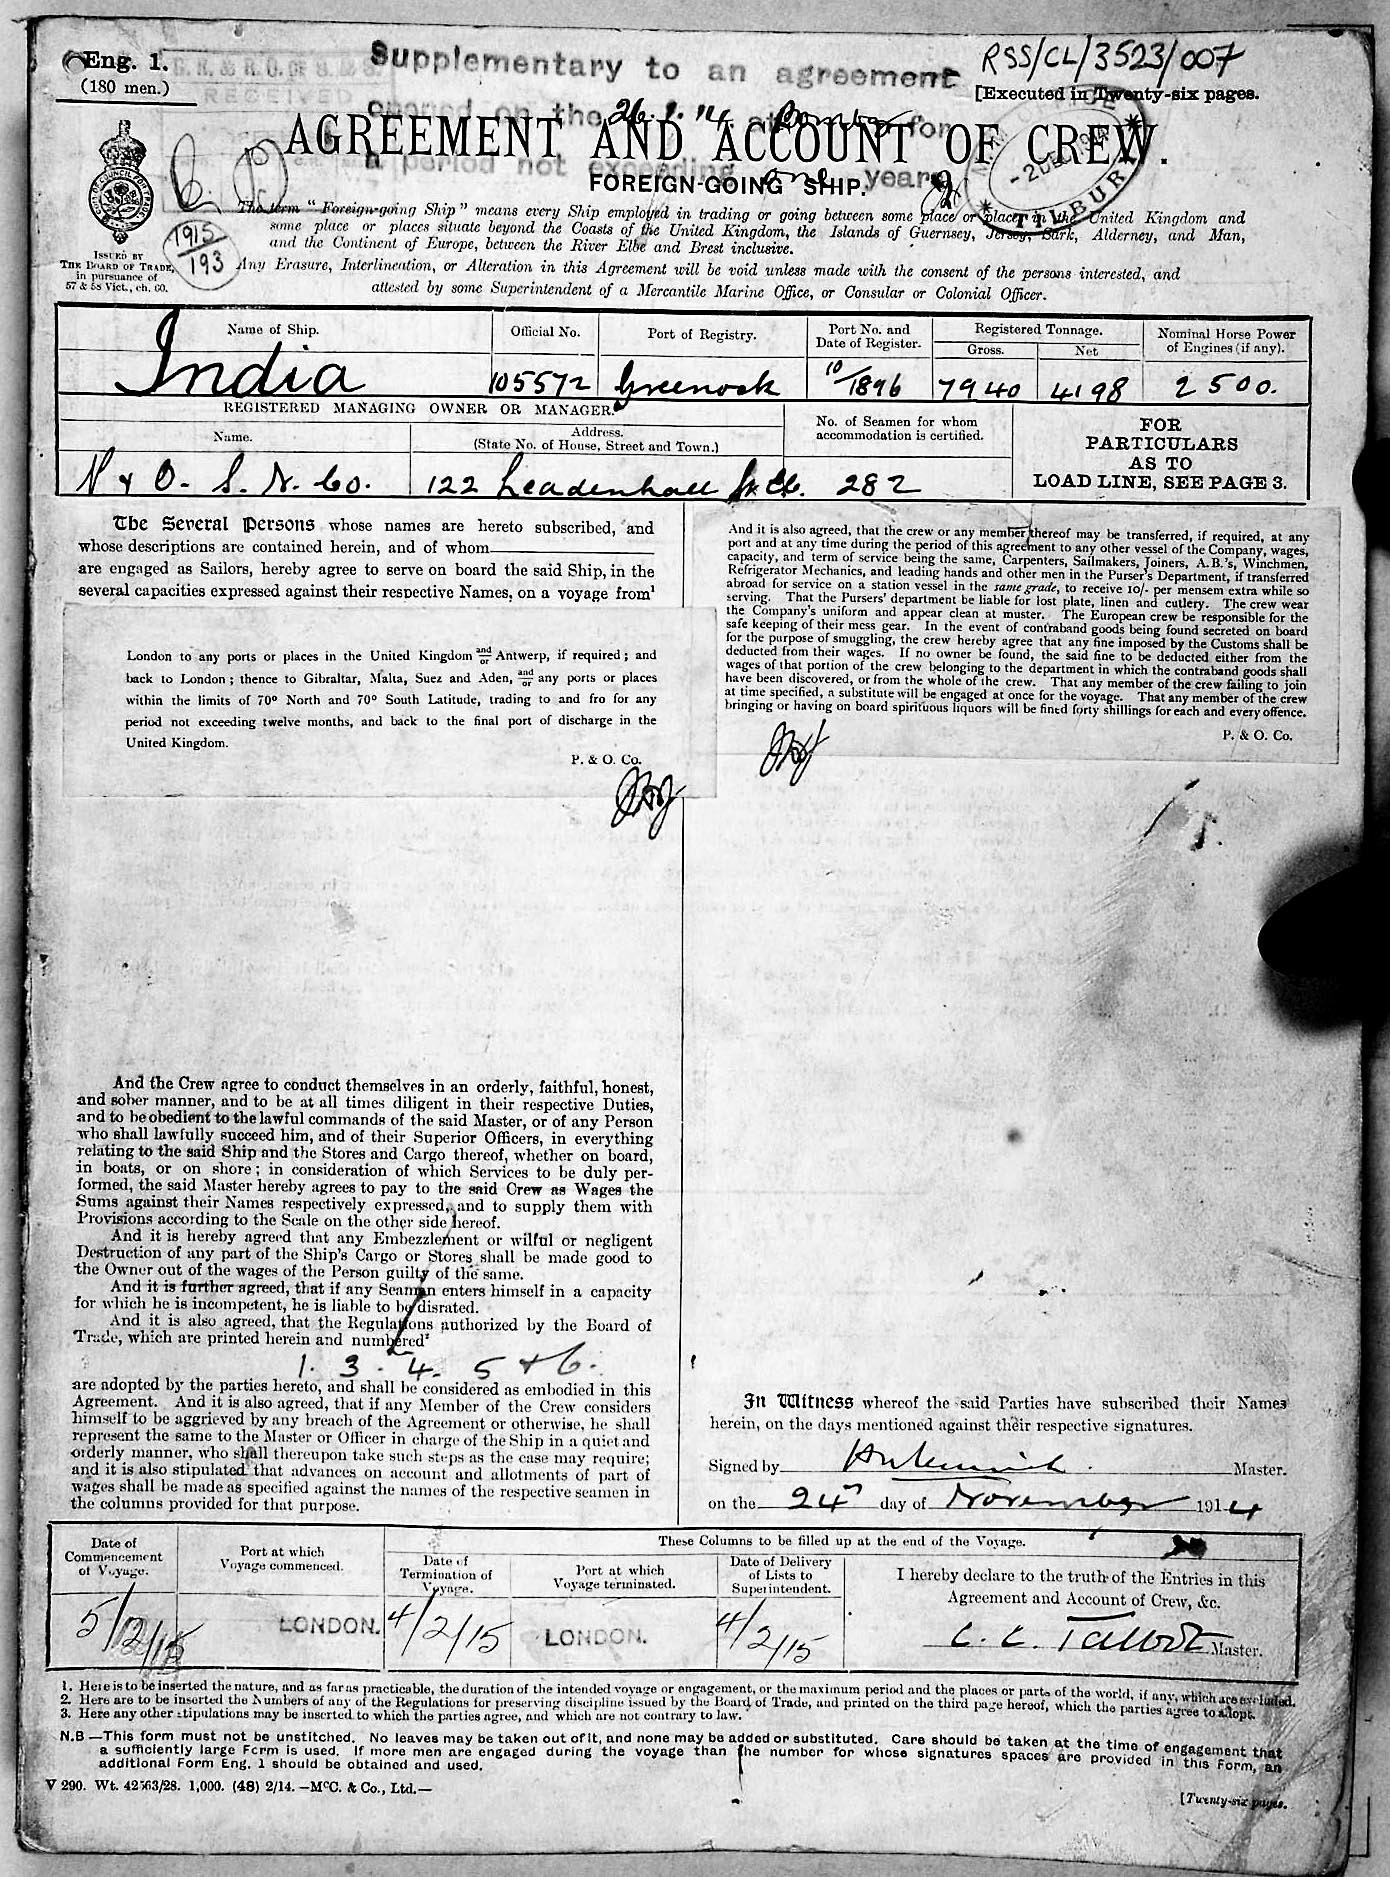 Eng. 1.
(180 men.)
RECEIVED
Supplementary to an agreement
opened on the 26. at Bombay for
a period not exceeding one year
RSS/CL/3523/007
[Executed in Twenty-six pages.
AGREEMENT AND ACCOUNT OF CREW.
FOREIGN-GOING SHIP.
TILBURY
1915
193
ISSUED BY
THE BOARD OF TRADE,
in pursuance of
57 & 58 Vict., ch. 60.
The term "Foreign-going Ship" means every Ship employed in trading or going between some place or places in the United Kingdom and
some place or places situate beyond the Coasts of the United Kingdom, the Islands of Guernsey, Jersey, Sark, Alderney, and Man,
and the Continent of Europe, between the River Elbe and Brest inclusive.
Any Erasure, Interlineation, or Alteration in this Agreement will be void unless made with the consent of the persons interested, and
attested by some Superintendent of a Mercantile Marine Office, or Consular or Colonial Officer.
Name of Ship. Official No. Port of Registry. Port No. and Date of Register. Registered Tonnage. Gross. Net Nominal Horse Power of Engines (if any).
India 105572 Greenock 10/1896 7940 4198 2500.
REGISTERED MANAGING OWNER OR MANAGER.
Name. Address. (State No. of House, Street and Town.) No. of Seamen for whom accommodation is certified.
P & O. S. N. Co. 122 Leadenhall St. 282
FOR
PARTICULARS
AS TO
LOAD LINE, SEE PAGE 3.
The Several Persons whose names are hereto subscribed, and
whose descriptions are contained herein, and of whom
are engaged as Sailors, hereby agree to serve on board the said Ship, in the
several capacities expressed against their respective Names, on a voyage from¹
London to any ports or places in the United Kingdom and/or Antwerp, if required; and
back to London; thence to Gibraltar, Malta, Suez and Aden, and/or any ports or places
within the limits of 70° North and 70° South Latitude, trading to and fro for any
period not exceeding twelve months, and back to the final port of discharge in the
United Kingdom.
P. & O. Co.
And the Crew agree to conduct themselves in an orderly, faithful, honest,
and sober manner, and to be at all times diligent in their respective Duties,
and to be obedient to the lawful commands of the said Master, or of any Person
who shall lawfully succeed him, and of their Superior Officers, in everything
relating to the said Ship and the Stores and Cargo thereof, whether on board,
in boats, or on shore; in consideration of which Services to be duly per-
formed, the said Master hereby agrees to pay to the said Crew as Wages the
Sums against their Names respectively expressed, and to supply them with
Provisions according to the Scale on the other side hereof.
And it is hereby agreed that any Embezzlement or wilful or negligent
Destruction of any part of the Ship's Cargo or Stores shall be made good to
the Owner out of the wages of the Person guilty of the same.
And it is further agreed, that if any Seaman enters himself in a capacity
for which he is incompetent, he is liable to be disrated.
And it is also agreed, that the Regulations authorized by the Board of
Trade, which are printed herein and numbered²
1. 3. 4. 5 & 6.
are adopted by the parties hereto, and shall be considered as embodied in this
Agreement. And it is also agreed, that if any Member of the Crew considers
himself to be aggrieved by any breach of the Agreement or otherwise, he shall
represent the same to the Master or Officer in charge of the Ship in a quiet and
orderly manner, who shall thereupon take such steps as the case may require;
and it is also stipulated that advances on account and allotments of part of
wages shall be made as specified against the names of the respective seamen in
the columns provided for that purpose.
And it is also agreed, that the crew or any member thereof may be transferred, if required, at any
port and at any time during the period of this agreement to any other vessel of the Company, wages,
capacity, and term of service being the same, Carpenters, Sailmakers, Joiners, A.B.'s, Winchmen,
Refrigerator Mechanics, and leading hands and other men in the Purser's Department, if transferred
abroad for service on a station vessel in the same grade, to receive 10/- per mensem extra while so
serving. That the Pursers' department be liable for lost plate, linen and cutlery. The crew wear
the Company's uniform and appear clean at muster. The European crew be responsible for the
safe keeping of their mess gear. In the event of contraband goods being found secreted on board
for the purpose of smuggling, the crew hereby agree that any fine imposed by the Customs shall be
deducted from their wages. If no owner be found, the said fine to be deducted either from the
wages of that portion of the crew belonging to the department in which the contraband goods shall
have been discovered, or from the whole of the crew. That any member of the crew failing to join
at time specified, a substitute will be engaged at once for the voyage. That any member of the crew
bringing or having on board spirituous liquors will be fined forty shillings for each and every offence.
P. & O. Co.
In Witness whereof the said Parties have subscribed their Names
herein, on the days mentioned against their respective signatures.
Signed by Master.
on the 24th day of November 1914
Date of Commencement of Voyage. Port at which Voyage commenced. These Columns to be filled up at the end of the Voyage.
Date of Termination of Voyage. Port at which Voyage terminated. Date of Delivery of Lists to Superintendent.
I hereby declare to the truth of the Entries in this
Agreement and Account of Crew, &c.
5/12/15 LONDON. 4/2/15 LONDON. 4/2/15
C. C. Talbot Master.
1. Here is to be inserted the nature, and as far as practicable, the duration of the intended voyage or engagement, or the maximum period and the places or parts of the world, if any, which are excluded.
2. Here are to be inserted the Numbers of any of the Regulations for preserving discipline issued by the Board of Trade, and printed on the third page hereof, which the parties agree to adopt.
3. Here any other stipulations may be inserted to which the parties agree, and which are not contrary to law.
N.B —This form must not be unstitched. No leaves may be taken out of it, and none may be added or substituted. Care should be taken at the time of engagement that
a sufficiently large Form is used. If more men are engaged during the voyage than the number for whose signatures spaces are provided in this Form, an
additional Form Eng. 1 should be obtained and used.
V 290. Wt. 42563/28. 1,000. (48) 2/14. —McC. & Co., Ltd.—
[Twenty-six pages.